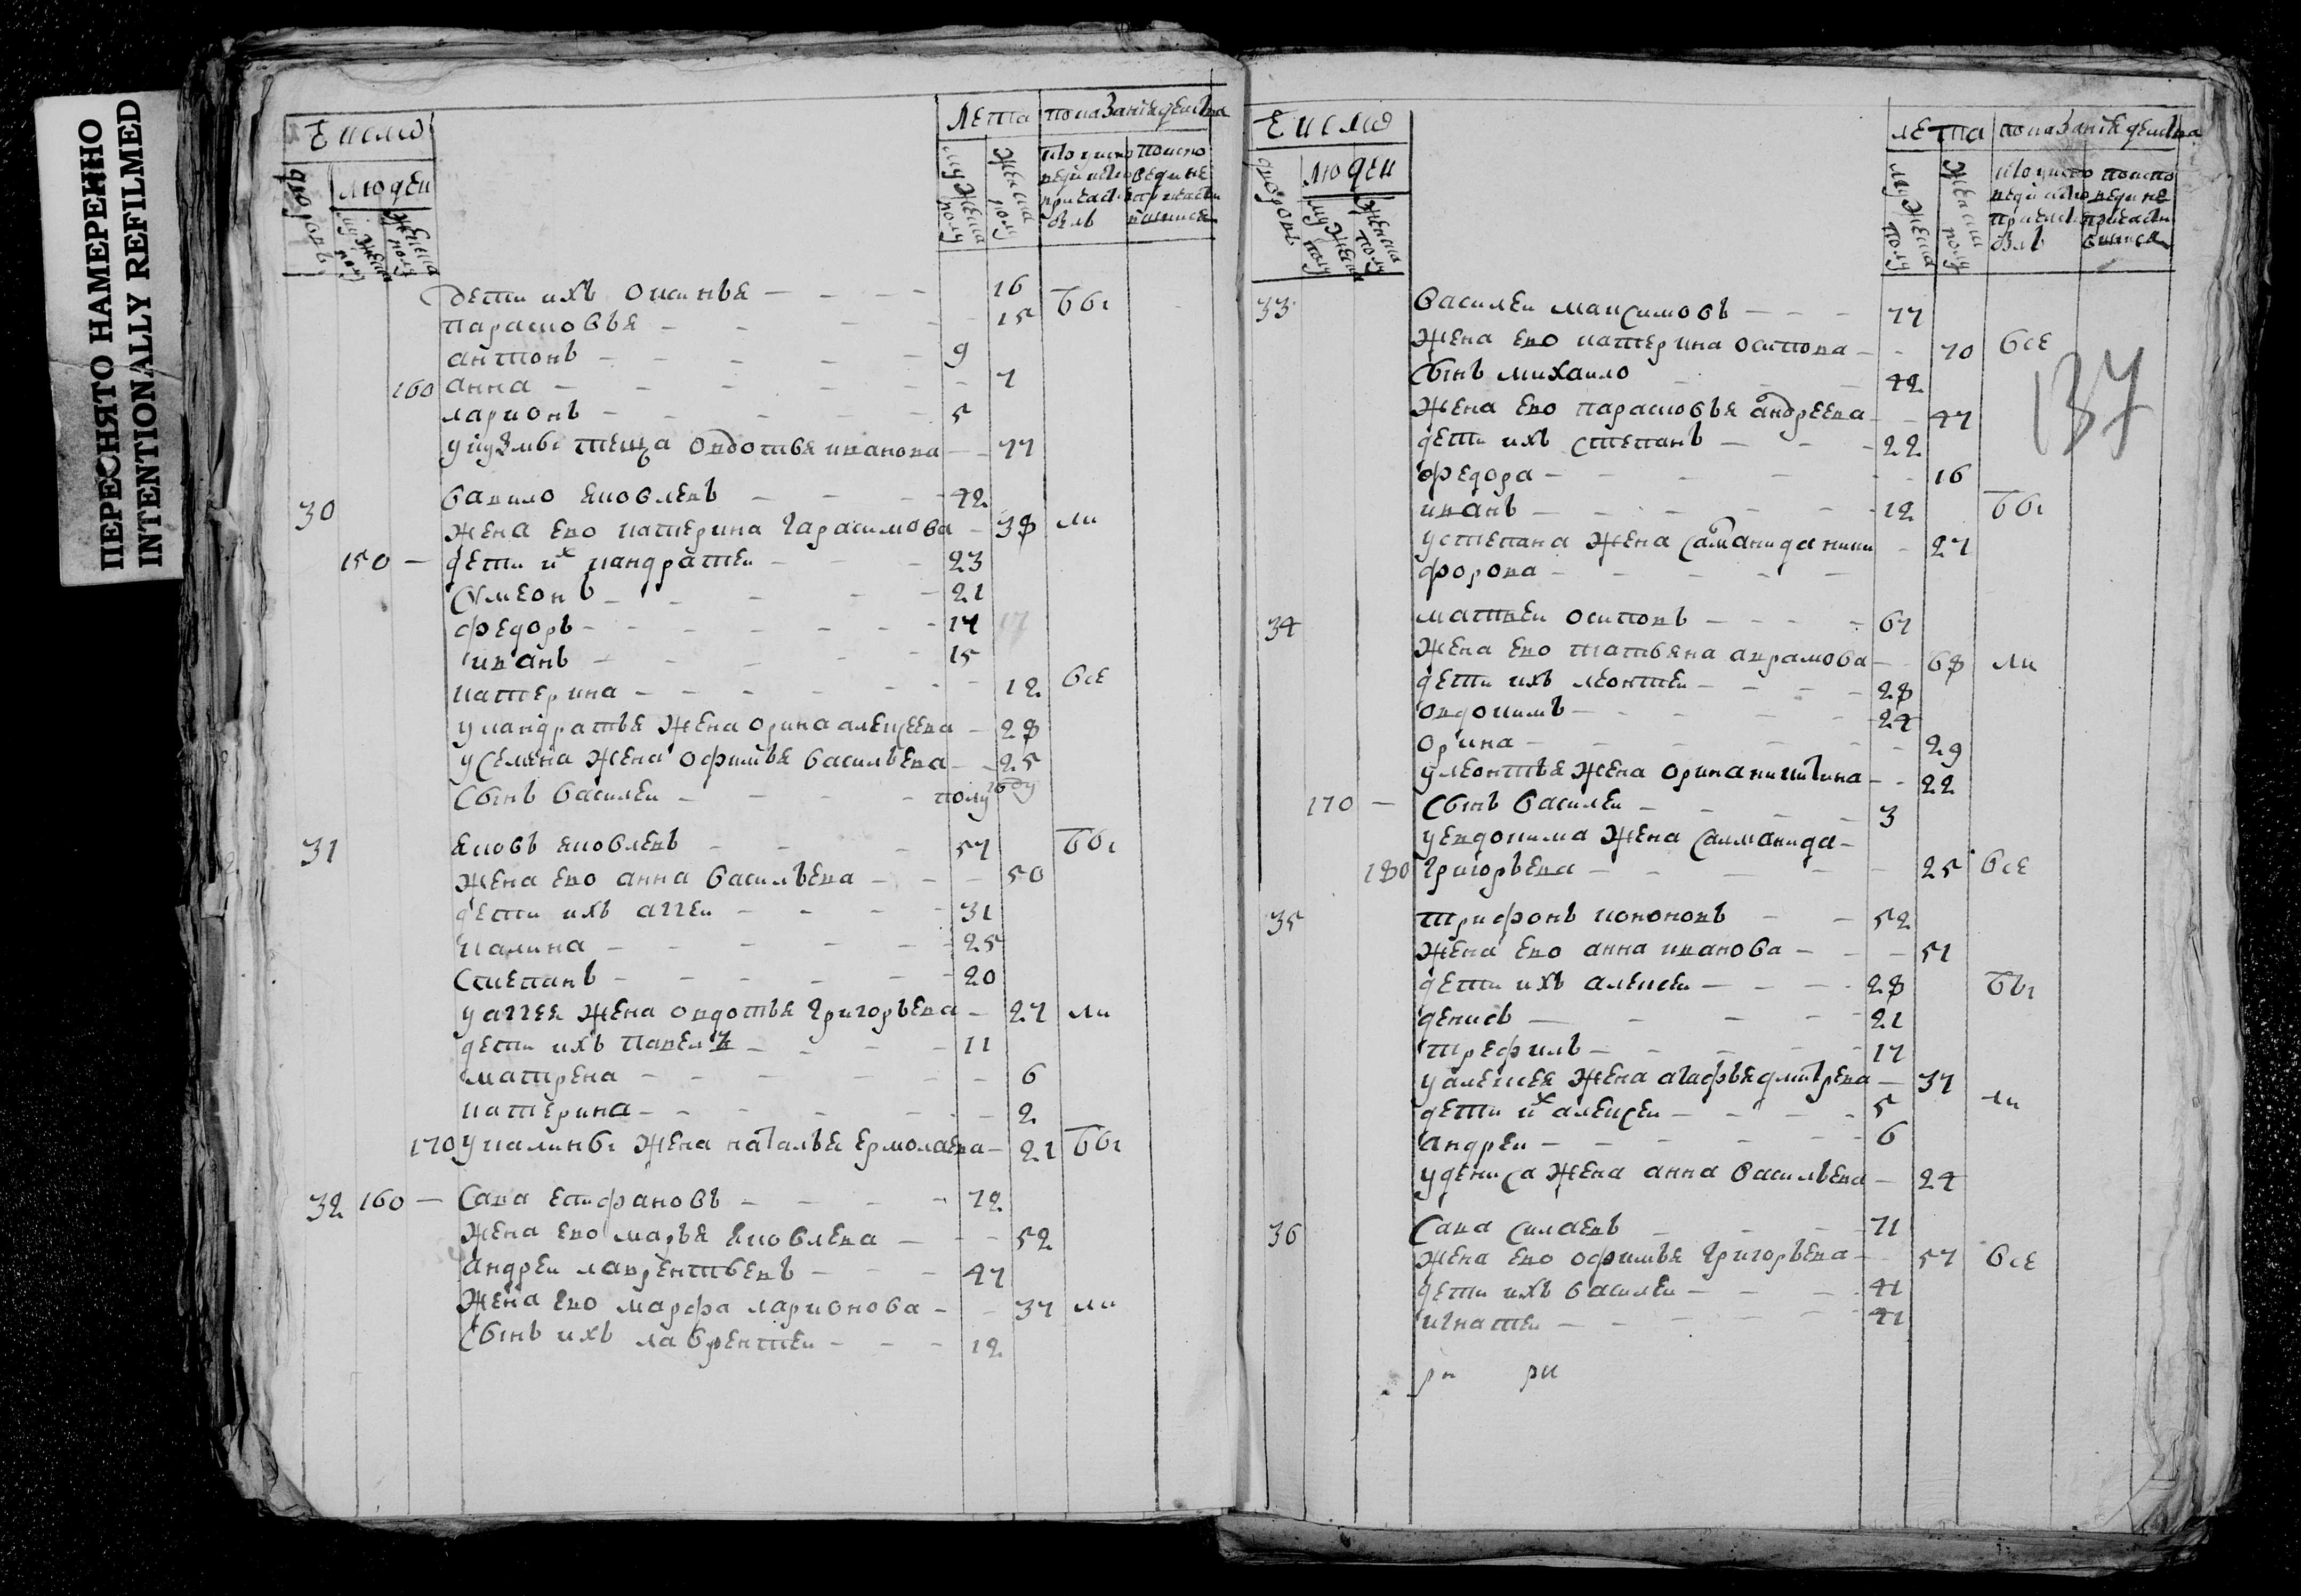 ПЕРЕСНЯТО НАМЕРЕННО
INTENTIONALLY REFILMED
Число
Лета
показание действа
дворовъ
людей
мужеска полу
женска полу
мужеска полу
женска полу
дети ихъ Оксинья 16 бы
Парасковья 15
Антонъ 9
160 Анна 7
Ларионъ 5
у кузмы теща Овдотья Иванова 77
30 Вавило Яковлевъ 42
жена ево Катерина Гарасимова 38 ли
150 дети их Кандратей 23
Симеонъ 21
Федоръ 17
Иванъ 15
Катерина 12 все
у Кандратья жена Орина Алексеева 28
у Семена жена Офимья Васильева 25
сынъ Василей полугоду
31 Яковъ Яковлевъ 57 бы
жена ево Анна Васильева 50
дети ихъ Аггей 31
Калина 25
Степанъ 20
у Аггея жена Овдотья Григорьева 27 ли
дети ихъ Павелъ 11
Матрена 6
Катерина 2
170 у Калины жена Наталья Ермолаева 21 бы
32 160 Сава Епифановъ 72
жена ево Марья Яковлева 52
Андрей Лаврентьевъ 47
жена ево Марфа Ларионова 37 ли
сынъ ихъ Лаврентей 12
Число
Лета
показание действа
дворовъ
людей
мужеска полу
женска полу
мужеска полу
женска полу
33 Василей Максимовъ 77
жена ево Катерина Осипова 70 все
137
сынъ Михаило 42
жена ево Парасковья Андреева 47
дети ихъ Степанъ 22
Федора 16
Иванъ 12 бы
у Степана жена Саламанида Ники 27
форова
34 Матвей Осиповъ 67
жена ево Татьяна Аврамова 68 ли
дети ихъ Леонтей 28
Овдокимъ 24
Орина 29
у Леонтья жена Орина Никитина 22
170 сынъ Василей 3
у Евдокима жена Саламанида
180 Григорьева 25 все
35 Трифонъ Кононовъ 52
жена ево Анна Иванова 51
дети ихъ Алексей 28 бы
Денисъ 21
Трефилъ 17
у Алексея жена Агафья Дмитрева 37
дети их Алексей 5 ли
Андрей 6
у Дениса жена Анна Васильева 24
36 Сава Силаевъ 71
жена ево Офимья Григорьева 57 все
дети ихъ Василей 41
Игнатей 41